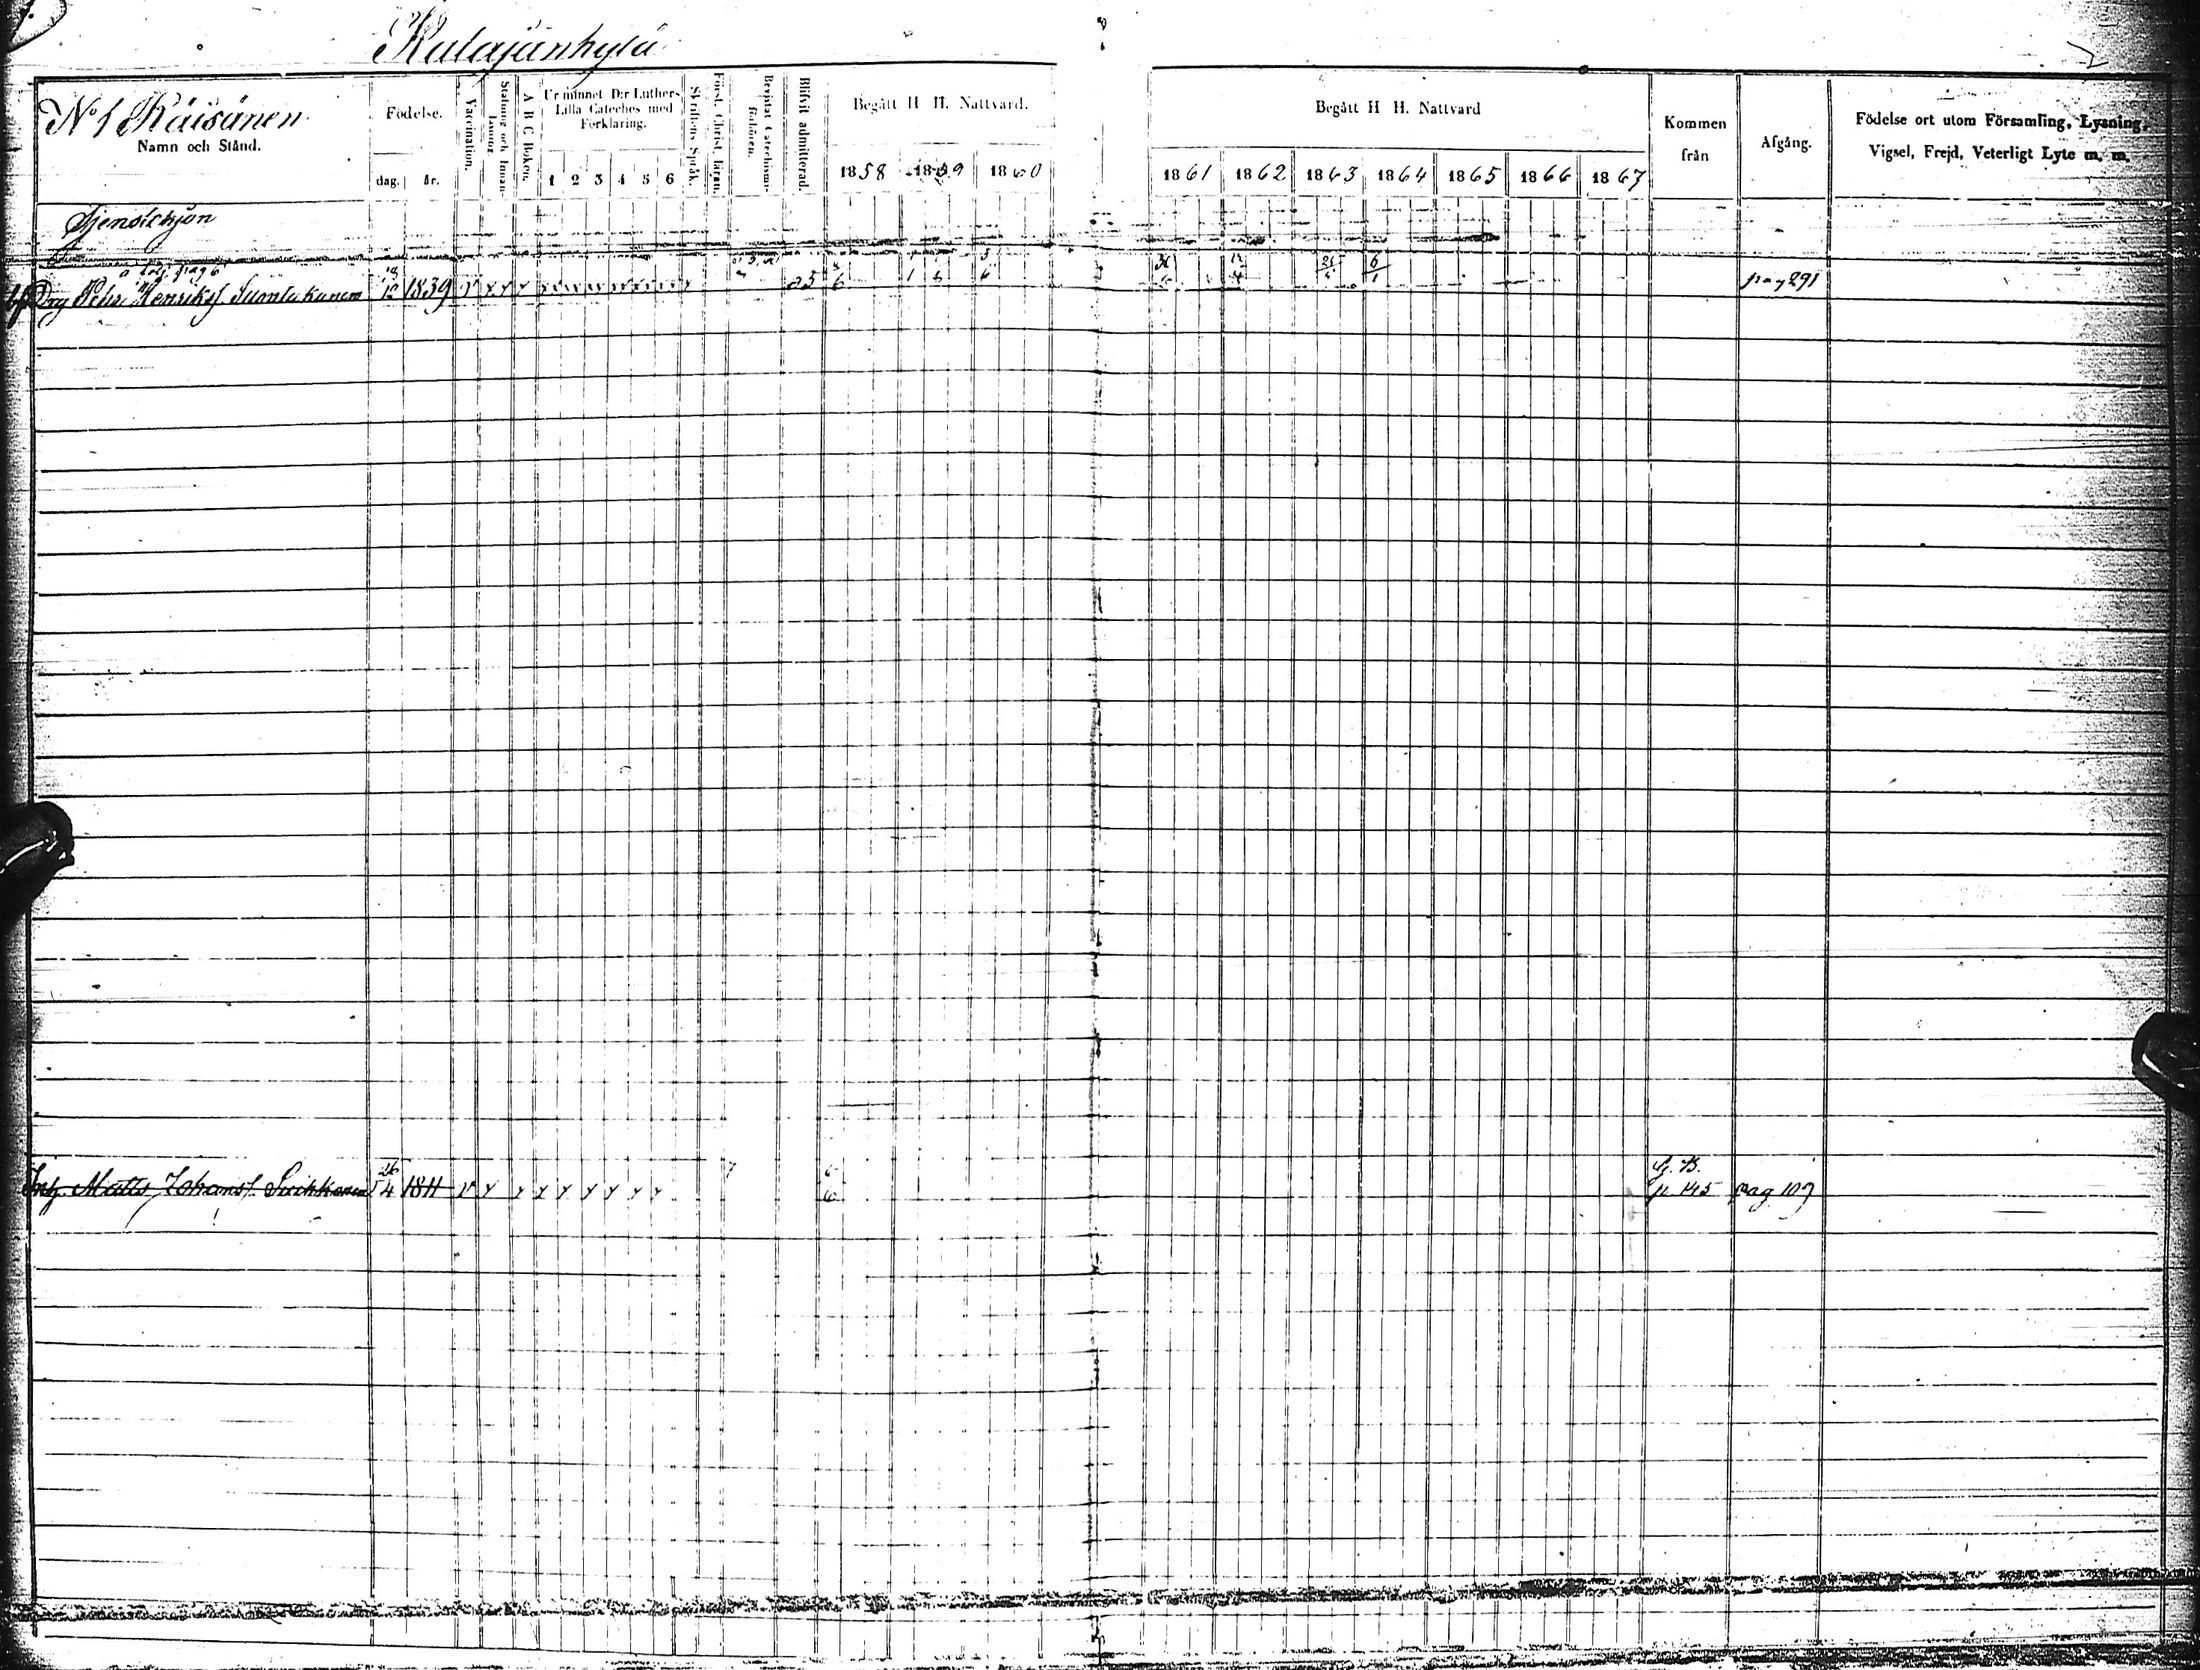 Kulajänkylä
2
No 1 Räisänen
Namn och Stånd.
Födelse.
dag. år.
Vaccination.
Stafning och Innanläsning
A B C Boken.
Ur minnet D:r Luthers Lilla Cateches med Förklaring.
1 2 3 4 5 6
Skriftens Språk.
Först. Christ. läran.
Bevistat Catechismiförhören.
Blifvit admitterad.
Begått H H. Nattvard.
1858 1859 1860
Begått H H. Nattvard
1861 1862 1863 1864 1865 1866 1867
Kommen från
Afgång.
Födelse ort utom Församling, Lysning,
Vigsel, Frejd, Veterligt Lyte m. m.
Tjenstehjon
pag 6
Drg Pehr Henrikss 12 1839 pag 291
Inh. Matts Johanss. 26 4 1811 p. 145 pag 109